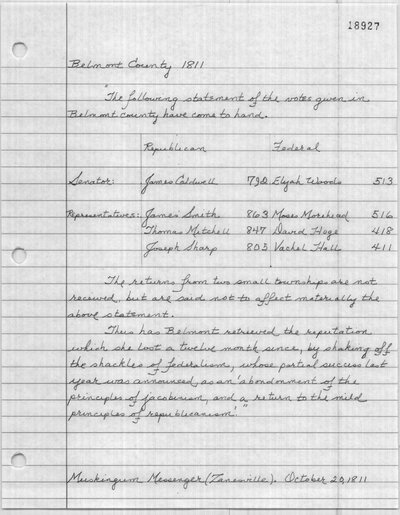 18927
Belmont County 1811
"The following statement of the votes given in
Belmont county have come to hand.
Republican Federal
Senator: James Caldwell 792 Elijah Woods 513
Representatives: James Smith 863 Moses Morehead 516
Thomas Mitchell 847 David Hoge 418
Joseph Sharp 805 Vachel Hall 411
The returns from two small townships are not
received, but are said not to affect materially the
above statement.
Thus has Belmont retrieved the reputation
which she lost a twelve month since, by shaking off
the shackles of federalism, whose partial success last
year was announced, as an 'abondonment of the
principles of Jacobinism, and a return to the mild
principles of republicanism'."
Muskingum Messenger (Zanesville). October 20, 1811